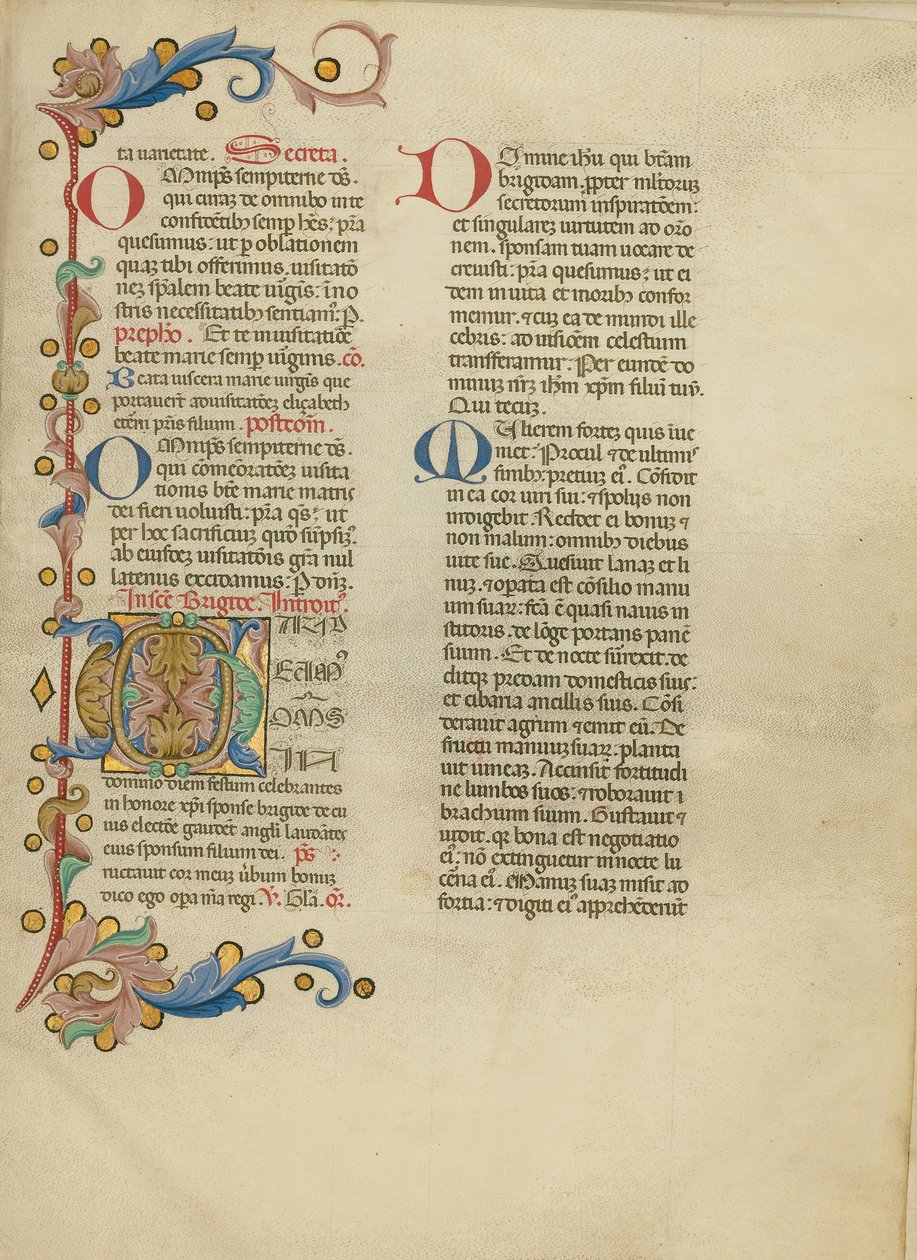 ta uarietate. Secreta.
OMnip̄s sempiterne d̄s.
qui cunaz de omnibo in te
confitētib9 semp hēs: p̄ra
quesumus: ut p oblationem
quaz tibi offerimus. uisitatō
nez sp̄alem beate uīgīs: ī no
stris necessitatib9 sentiam9. P.
prepħo. Et te in uisitatiōe
beate marie semp uīginis. cō.
Beata uiscera marie uirgīs que
portauer̄t ad uisitatōez elizabeth
etēni p̄ris filium. postcōm̄.
OMnip̄s sempiterne d̄s.
qui cōmeōratōez uisita
tionis btē marie matris
dei fieri uoluisti: p̄ra q̄s: ut
per hoc sacrificiuz quō sūpsiz9.
ab eiusdez uisitatōis grā nul
latenus excidamus: P dōnz.
In scē Brigide. Introit9.
GAUD
EAM9
OMS
IN
domino diem festum celebrantes
in honore xp̄i sponse brigide de cu
ius electōe gaudēt angli laudātes
eius sponsum filium dei. p̄s
ructauit cor meuz ūbum bonuz
dico ego opa m̄a regi. V. Gl̄a. or̄.
DOmine ih̄u qui btām
brigidam. ꝓpter ml̄torūz
secretorum inspiratōem:
et singularez uirtutem ad orō
nem. sponsam tuam uocare de
creuisti: p̄ra quesumus: ut ei
dem in uita et morib9 confor
memur. ⁊ cuz ea de mundi ille
cebris: ad uisiōem celestium
transferamur. Per eundē do
minuz nr̄z ih̄m xp̄m filiū tuū.
Qui tecuz.
MUlierem fortez quis iue
niet: Procul ⁊ de ultimis
finib9: pretiuz ei9. Cōfidit
in ea cor uiri sui: ⁊ spolijs non
indigebit. Reddet ei bonuz ⁊
non malum: omnib9 diebus
uite sue. Quesiuit lanaz et li
nuz. ⁊ opata est cōsilio manu
um suaꝝ: fcā ē quasi nauis in
stitoris. de lōge portans panē
suum. Et de nocte surexit. de
ditqz predam domesticis suis:
et cibaria ancillis suis. Cōsi
derauit agrum ⁊ emit eū. De
fructu manuuz suaꝝ. planta
uit uineaz. Accinsit fortitudi
ne lumbos suos: ⁊ roborauit
brachium suum. Gustauit ⁊
uidit. qz bona est negotiatio
ei9: nō extinguetur in nocte lu
cēna ei9. Manuz suaz misit ad
fortia: ⁊ digiti ei9 apprehēderunt